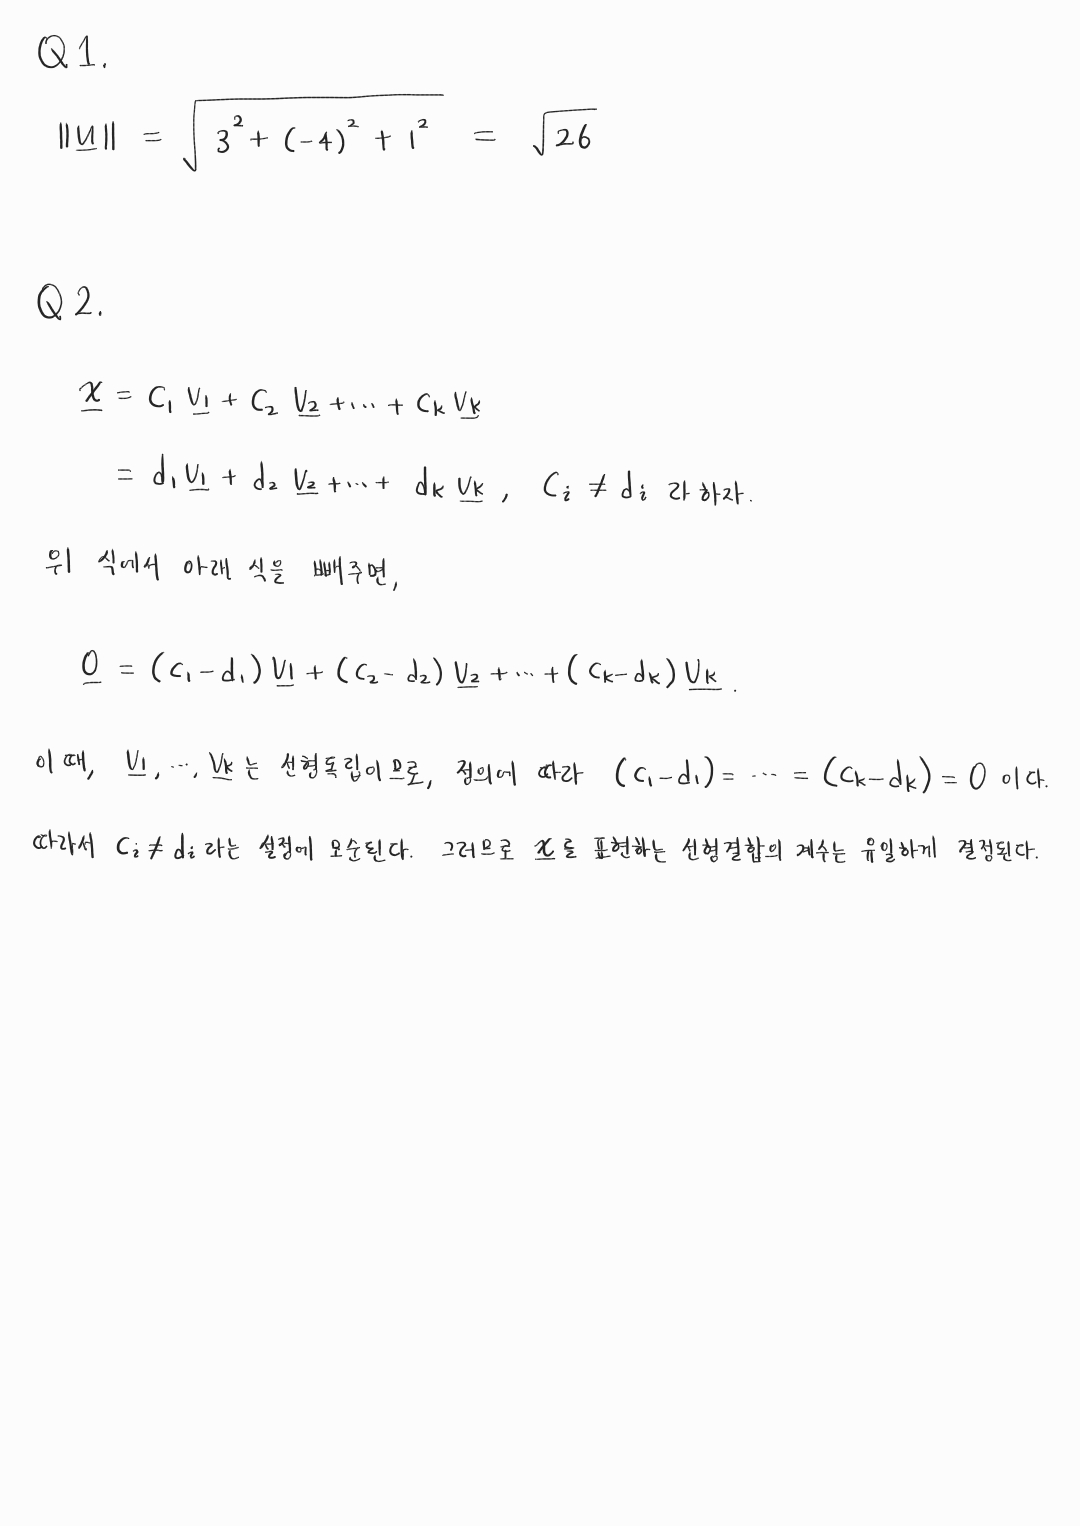 Q1.
‖u‖ = √(3² + (-4)² + 1²) = √26
Q2.
x = C₁ V₁ + C₂ V₂ + ··· + Cₖ Vₖ
= d₁ V₁ + d₂ V₂ + ··· + dₖ Vₖ , Cᵢ ≠ dᵢ 라 하자.
위 식에서 아래 식을 빼주면,
0 = (C₁ - d₁) V₁ + (C₂ - d₂) V₂ + ··· + (Cₖ - dₖ) Vₖ .
이 때, V₁, ···, Vₖ 는 선형독립이므로, 정의에 따라 (C₁ - d₁) = ··· = (Cₖ - dₖ) = 0 이다.
따라서 Cᵢ ≠ dᵢ 라는 설정에 모순된다. 그러므로 x 를 표현하는 선형결합의 계수는 유일하게 결정된다.